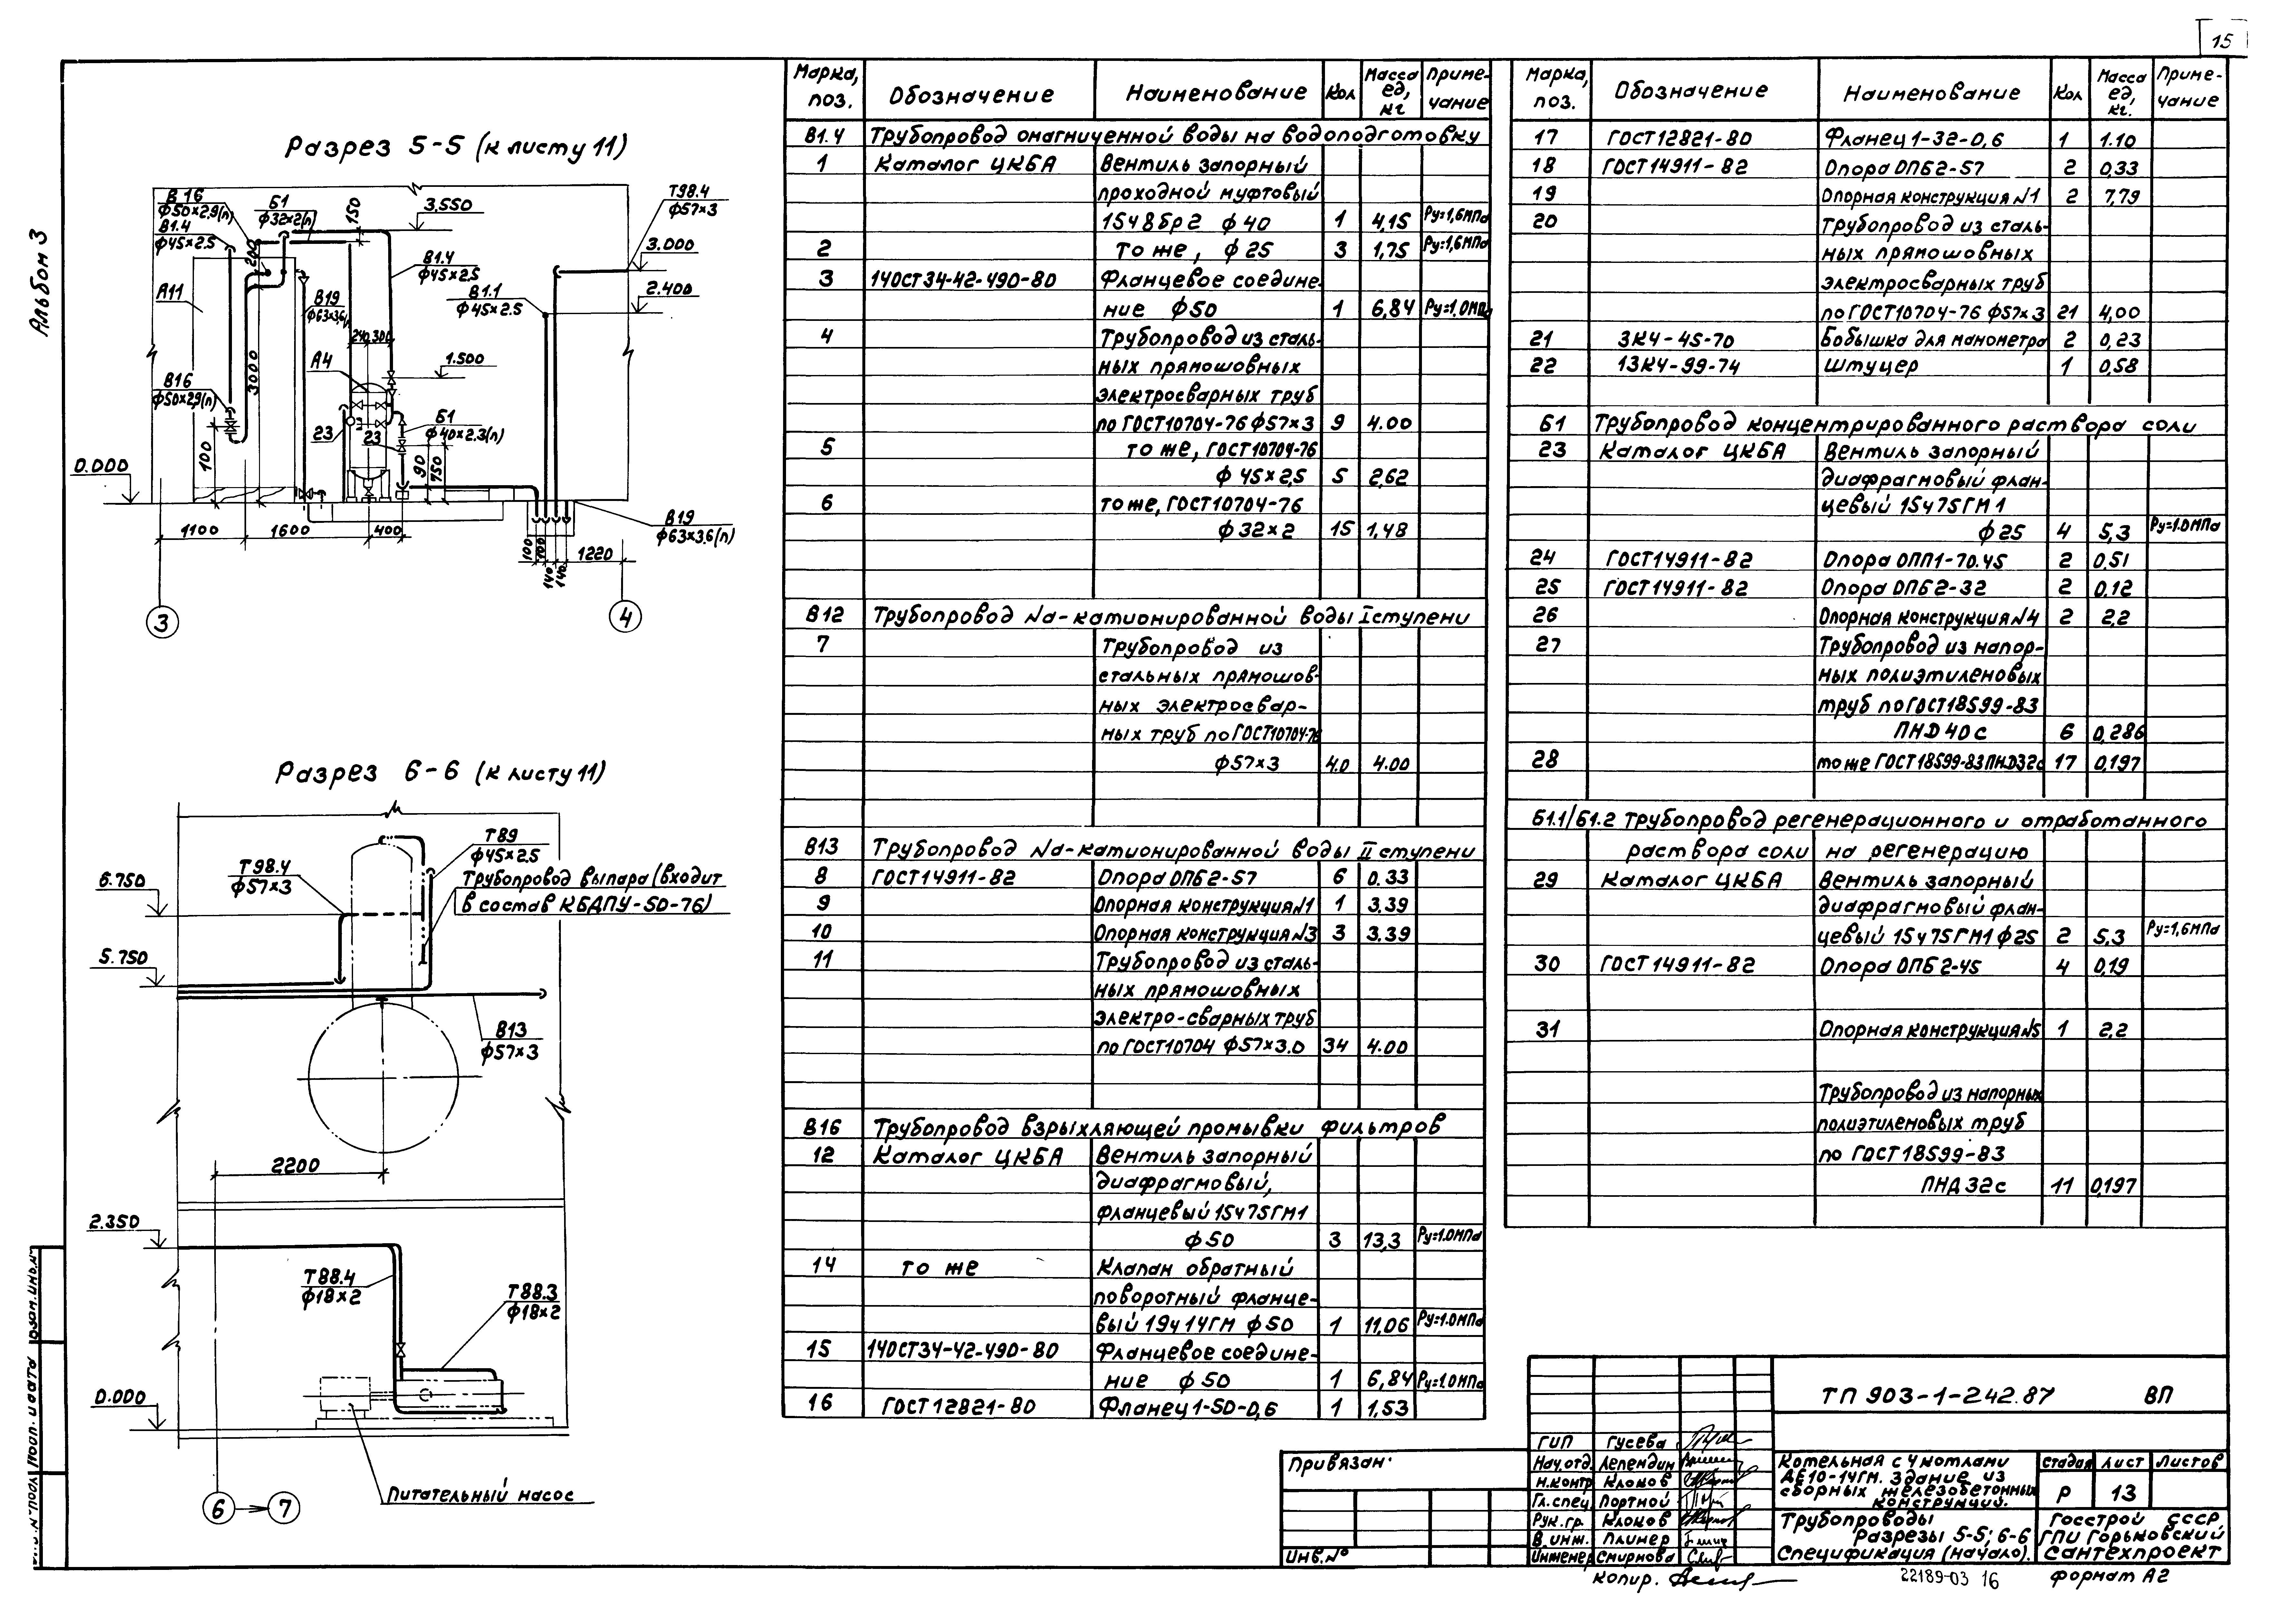 15
Альбом 3
Разрез 5-5 (к листу 11)
В16
ф50×2,9(п)
В1.4
ф45×2.5
Б1
ф32×2(п)
150
3.550
Т98.4
ф57×3
3.000
200
В1.4
ф45×2.5
А11
В19
ф63×3,6(п)
В1.1
ф45×2.5
2.400
240 300
А4
1.500
3000
В16
ф50×2,9(п)
Б1
ф40×2.3(п)
23
23
100
90
750
0.000
1100
1600
400
100
100
140
140
1220
В19
ф63×3.6(п)
3
4
Разрез 6-6 (к листу 11)
Т89
ф45×2.5
Т98.4
ф57×3
Трубопровод выпара (входит
в состав КБДПУ-50-76)
6.750
5.750
В13
ф57×3
2200
2.350
Т88.4
ф18×2
Т88.3
ф18×2
0.000
Питательный насос
6
7
Марка, поз. Обозначение Наименование Кол Масса ед, кг Приме-чание
В1.4 Трубопровод омагниченной воды на водоподготовку
1 Каталог ЦКБА Вентиль запорный
проходной муфтовый
15ч8бр2 ф40 1 4,15 Ру=1,6МПа
2 то же, ф25 3 1,75 Ру=1,6МПа
3 14ОСТ34-42-490-80 Фланцевое соедине-
ние ф50 1 6,84 Ру=1.0МПа
4 Трубопровод из сталь-
ных прямошовных
электросварных труб
по ГОСТ10704-76 ф57×3 9 4.00
5 то же, ГОСТ10704-76
ф45×2,5 5 2,62
6 то же, ГОСТ10704-76
ф32×2 15 1,48
В12 Трубопровод Na-катионированной воды I ступени
7 Трубопровод из
стальных прямошов-
ных электросвар-
ных труб по ГОСТ10704-76
ф57×3 4.0 4.00
В13 Трубопровод Na-катионированной воды II ступени
8 ГОСТ14911-82 Опора ОПБ2-57 6 0.33
9 Опорная конструкция№1 1 3.39
10 Опорная конструкция№3 3 3.39
11 Трубопровод из сталь-
ных прямошовных
электро-сварных труб
по ГОСТ10704 ф57×3.0 34 4.00
В16 Трубопровод взрыхляющей промывки фильтров
12 Каталог ЦКБА Вентиль запорный
диафрагмовый,
фланцевый 15ч75ГМ1
ф50 3 13,3 Ру=1.0МПа
14 то же Клапан обратный
поворотный фланце-
вый 19ч14ГМ ф50 1 11,06 Ру=1.0МПа
15 14ОСТ34-42-490-80 Фланцевое соедине-
ние ф50 1 6,84 Ру=1.0МПа
16 ГОСТ12821-80 Фланец 1-50-0,6 1 1,53
Марка, поз. Обозначение Наименование Кол Масса ед, кг. Приме-чание
17 ГОСТ12821-80 Фланец 1-32-0,6 1 1.10
18 ГОСТ14911-82 Опора ОПБ2-57 2 0,33
19 Опорная конструкция №1 2 7,79
20 Трубопровод из сталь-
ных прямошовных
электросварных труб
по ГОСТ10704-76 ф57×3 21 4,00
21 3К4-45-70 Бобышка для манометра 2 0,23
22 13К4-99-74 Штуцер 1 0,58
Б1 Трубопровод концентрированного раствора соли
23 Каталог ЦКБА Вентиль запорный
диафрагмовый флан-
цевый 15ч75ГМ1
ф25 4 5,3 Ру=1.0МПа
24 ГОСТ14911-82 Опора ОПП1-70.45 2 0,51
25 ГОСТ14911-82 Опора ОПБ2-32 2 0,12
26 Опорная конструкция№4 2 2,2
27 Трубопровод из напор-
ных полиэтиленовых
труб по ГОСТ18599-83
ПНД 40с 6 0,286
28 то же ГОСТ18599-83ПНД32с 17 0,197
Б1.1/Б1.2 Трубопровод регенерационного и отработанного
раствора соли на регенерацию
29 Каталог ЦКБА Вентиль запорный
диафрагмовый флан-
цевый 15ч75ГМ1 ф25 2 5,3 Ру=1,6МПа
30 ГОСТ14911-82 Опора ОПБ2-45 4 0,19
31 Опорная конструкция№5 1 2,2
Трубопровод из напорных
полиэтиленовых труб
по ГОСТ18599-83
ПНД 32с 11 0,197
ТП 903-1-242.87 ВП
ГИП Гусева
Нач.отд. Лепендин
Н.контр Клоков
Гл.спец Портной
Рук.гр. Клоков
В.инж. Плинер
Инженер Смирнова
Котельная с 4 котлами
ДЕ10-14ГМ. Здание из
сборных железобетонных
конструкций.
Стадия Лист Листов
Р 13
Трубопроводы
Разрезы 5-5; 6-6
Спецификация (начало).
Госстрой СССР
ГПИ Горьковский
Сантехпроект
Привязан:
Инв.№
Взам.инв.№
Подп. и дата
Копир.
22189-03 16
формат А2